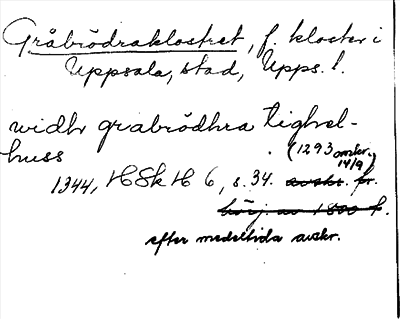 Gråbrödraklostret, f. kloster i
Uppsala, stad, Upps. l.
widhr grabrödhra tighel-
huss (1293 omkr.
14/9)
1344, HSkH 6, s. 34. avskr. fr.
börj. av 1800 t.
efter medeltida avskr.